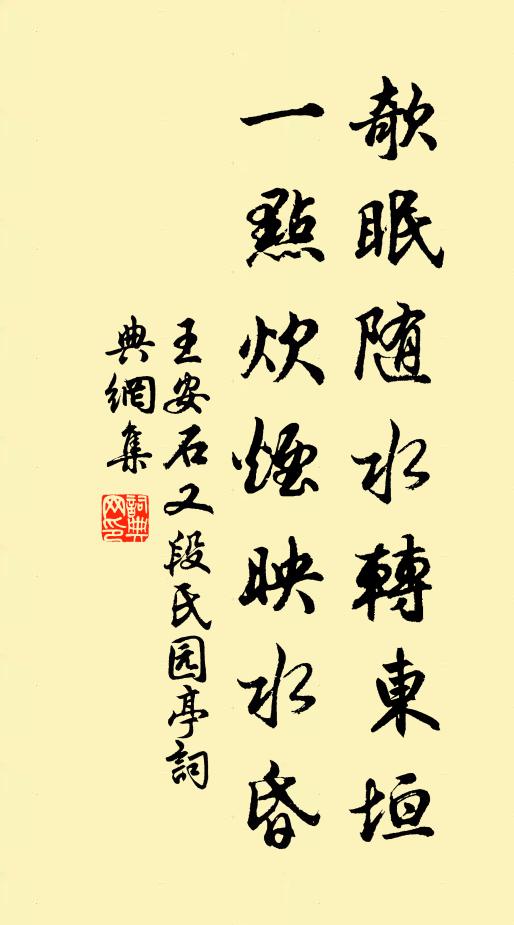 欹眠随水轉東垣
一點炊煙映水昏
王安石又段氏园亭詞
典網集
詞典网印